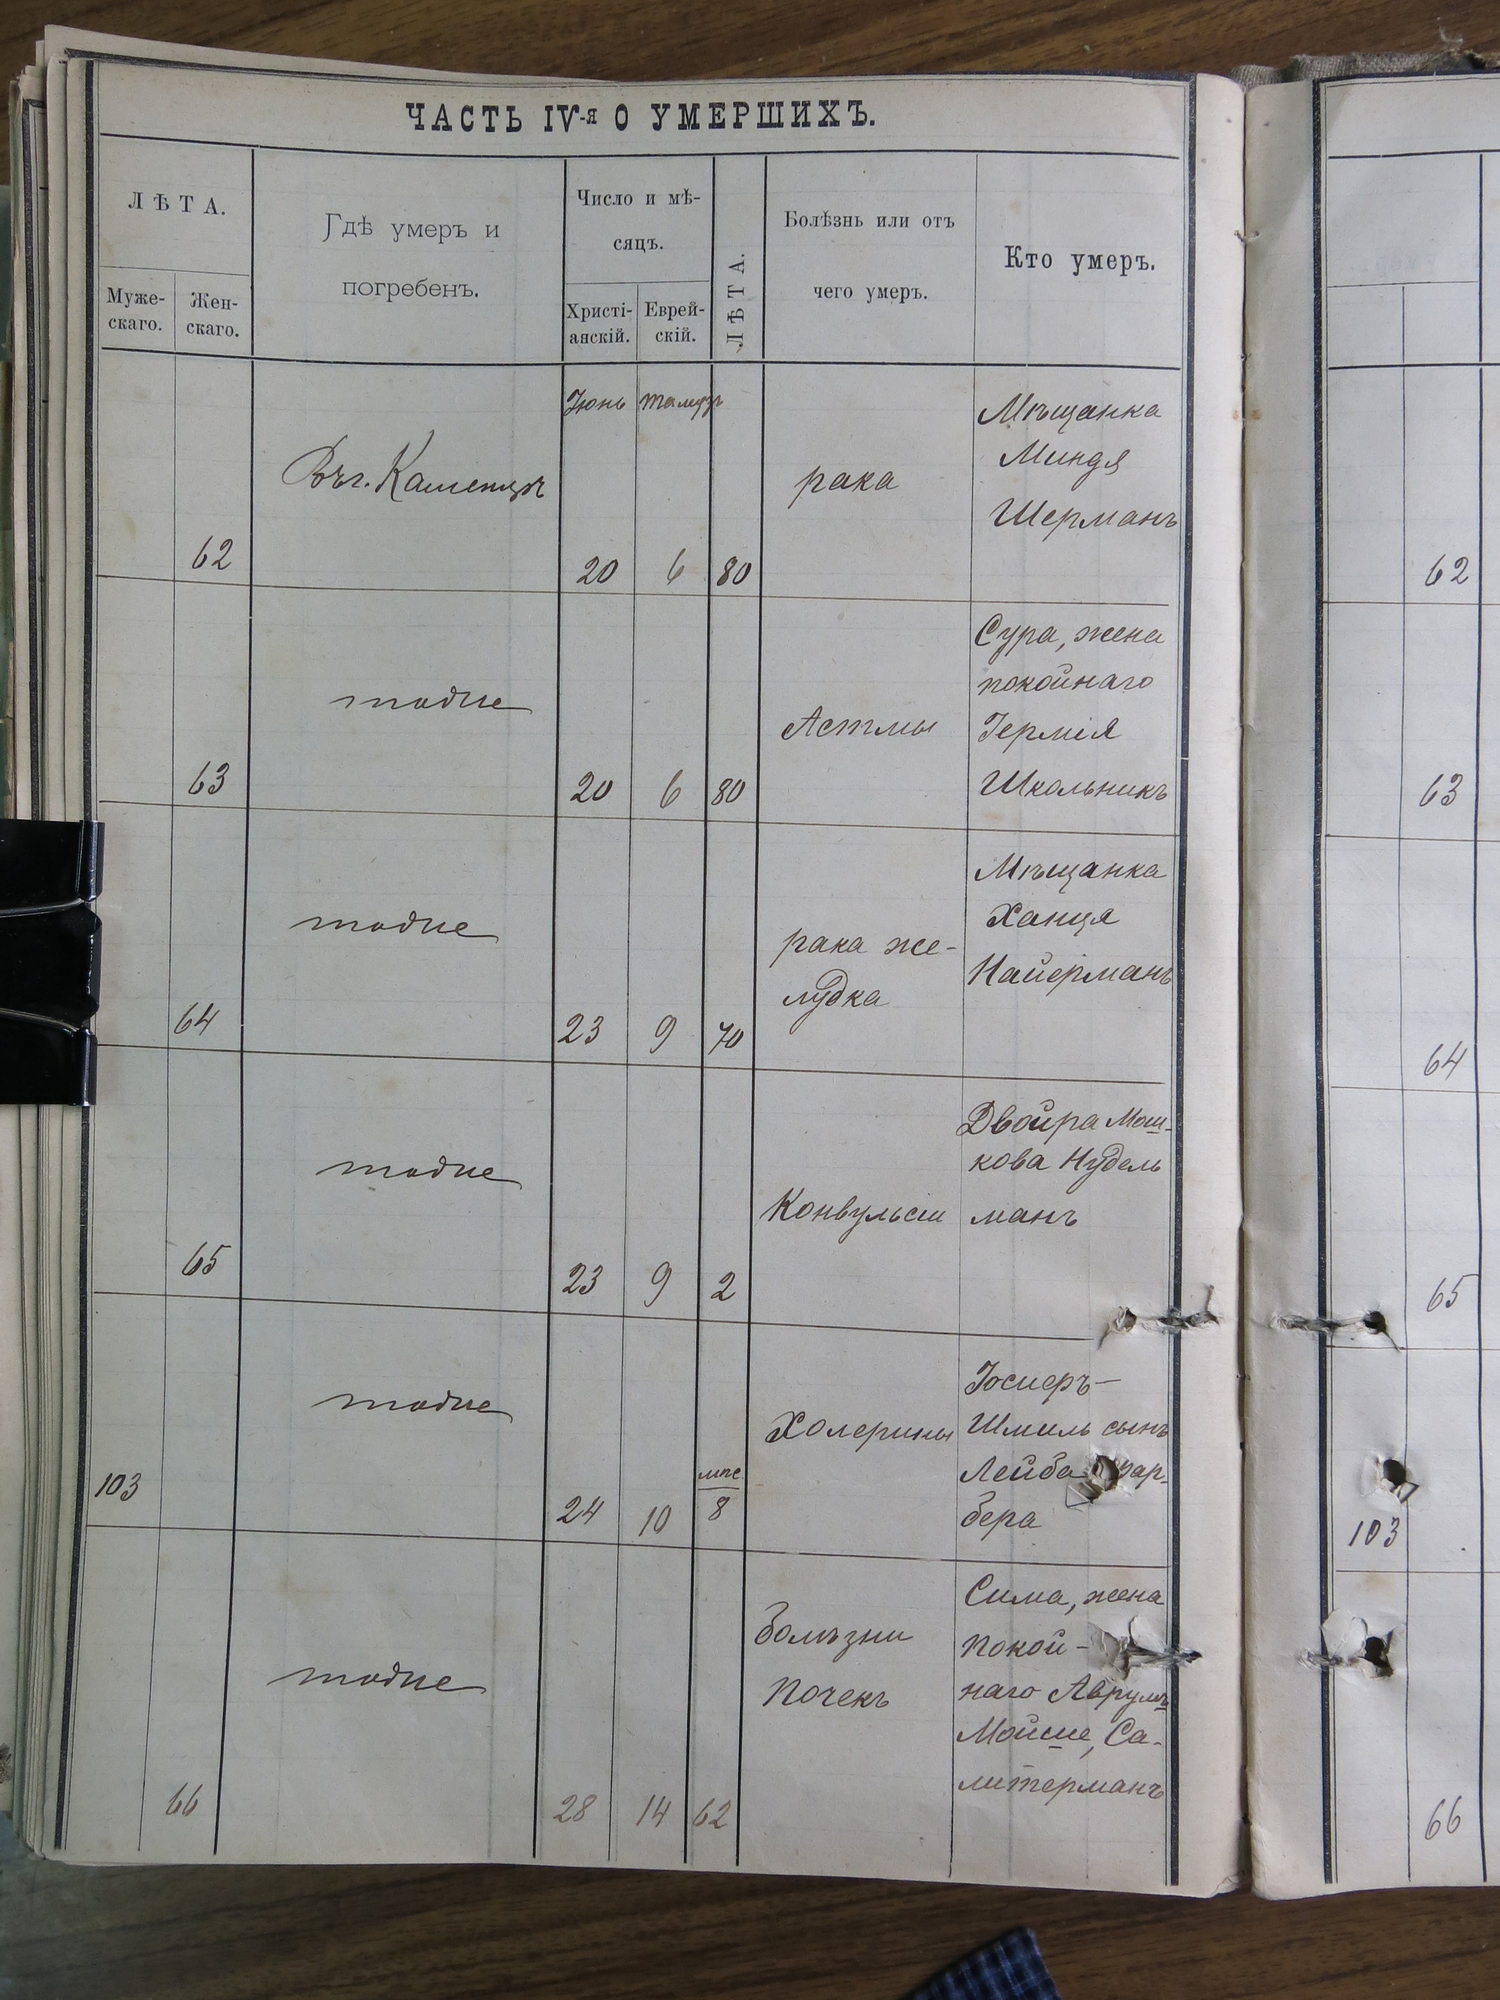 ЧАСТЬ IV-я О УМЕРШИХЪ.
ЛѢТА.
Муже-
скаго.
Жен-
скаго.
Гдѣ умеръ и
погребенъ.
Число и мѣ-
сяцъ.
Христі-
анскій.
Еврей-
скій.
ЛѢТА.
Болѣзнь или отъ
чего умеръ.
Кто умеръ.
Іюнь Тамузъ
62
Въ г. Каменцѣ
20 6 80
рака
Мѣщанка
Миндя
Шерманъ
62
63
тоже
20 6 80
Астмы
Сура, жена
покойнаго
Гермія
Школьникъ
63
64
тоже
23 9 70
рака же-
лудка
Мѣщанка
Ханця
Найерманъ
64
65
тоже
23 9 2
Конвульсіи
Двойра Мош-
кова Нудель
манъ
65
103
тоже
24 10
мѣс.
8
Холерины
Іосиеръ-
Шмиль сынъ
Лейба
бера
103
66
тоже
28 14 62
Болѣзни
почекъ
Сима, жена
покой-
наго Аврумъ
Мойше, Са-
литерманъ
66